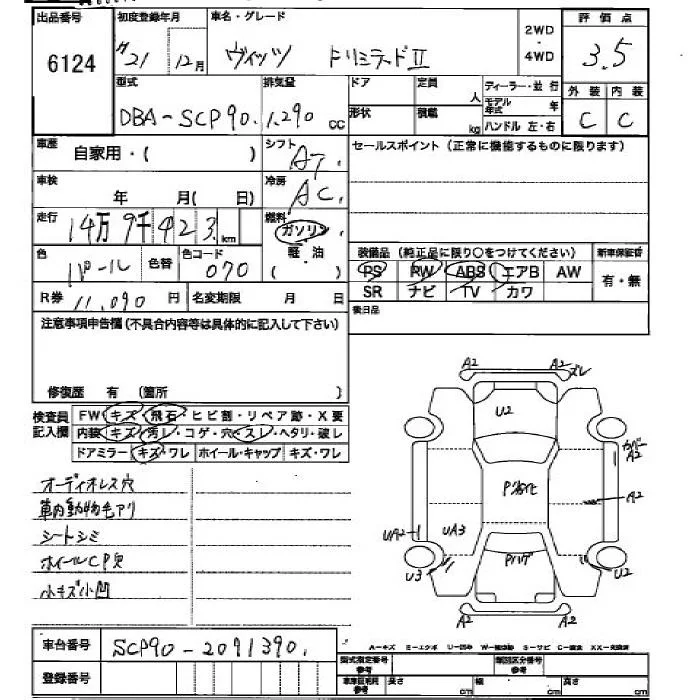 出品番号 初度登録年月 車名・グレード 2WD・4WD 評価点
6124 H21 12月 ヴィッツ トリミテッドⅡ 3.5
型式 排気量 ドア 定員 人 ディーラー・並行 外装 内装
DBA-SCP90. 1,290 cc 形状 積載 kg モデル年式 年 ハンドル 左・右 C C
車歴 自家用・( ) シフト AT. セールスポイント(正常に機能するものに限ります)
車検 年 月(日) 冷房 AC.
走行 14万9千423.km 燃料 ガソリン
軽・油
色 パール 色替 色コード 070 装備品(純正品に限り○をつけてください) 新車保証書
PS PW ABS エアB AW 有・無
R券 11,090円 名変期限 月 日 SR ナビ TV カワ
後日品
注意事項申告欄(不具合内容等は具体的に記入して下さい)
修復歴 有 (箇所 )
検査員記入欄 FW キズ・飛石・ヒビ割・リペア跡・X要
内装・キズ・汚レ・コゲ・穴・スレ・ヘタリ・破レ
ドアミラー キズ・ワレ ホイール・キャップ キズ・ワレ
オーディオレス穴
車内動物毛アリ
シートシミ
ホイールCP欠
小キズ小凹
A2 A2 ズレ
U2
カバーA2
P劣化 A2
UA2 UA3
Pハゲ
U3 U2
A2 A2
車台番号 SCP90-2091390.
A-キズ E-エクボ U-凹み S-サビ
登録番号 型式指定番号 参考 類別区分番号 参考
車庫証明用 参考 長さ cm 幅 cm 高さ cm